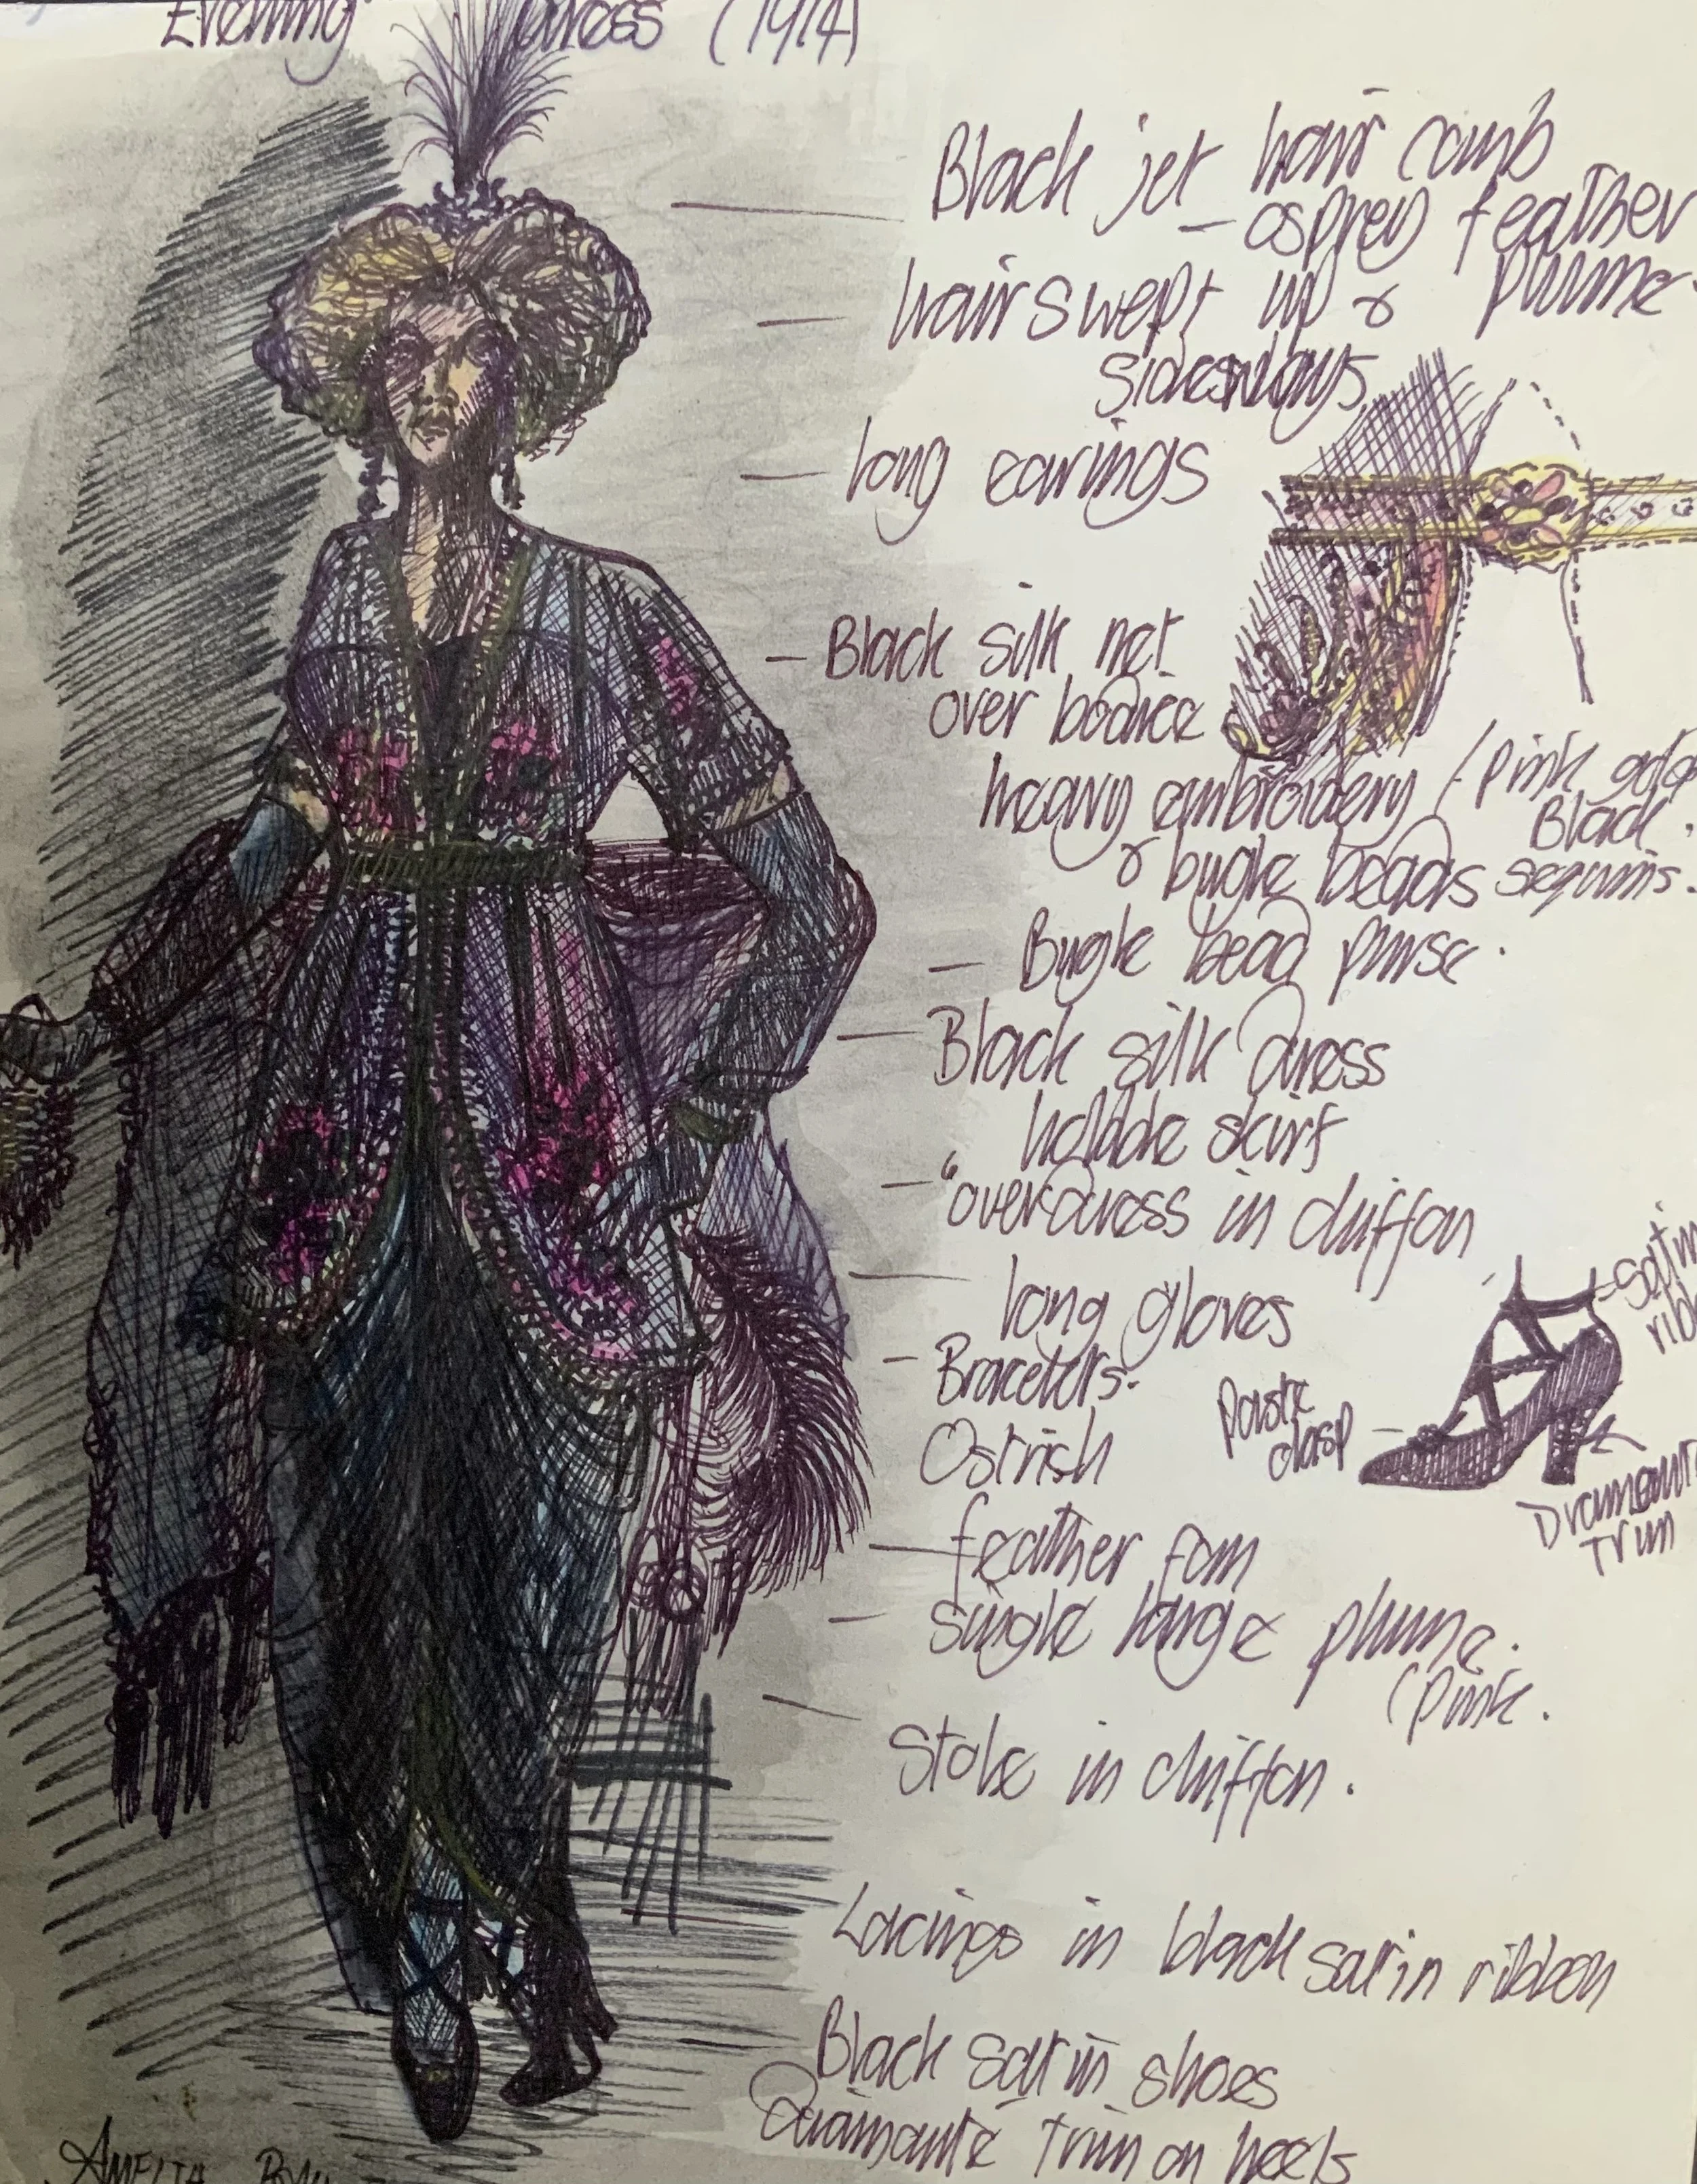 Evening dress (1914)
Black jet hair comb
- osprey feather
plume
hair swept up &
sideways
long earings
Black silk net
over bodice
heavy embroidery (pink gold
Black.
& bugle beads sequins.
Bugle bead purse.
Black silk dress
hobble skirt
"overdress in chiffon
long gloves
satin
Bracelets.
paste
clasp
Ostrich
feather fan
trim
single large plume.
(pink.
Stole in chiffon.
Lacings in black satin ribbon
Black satin shoes
Diamante trim on heels
AMELIA